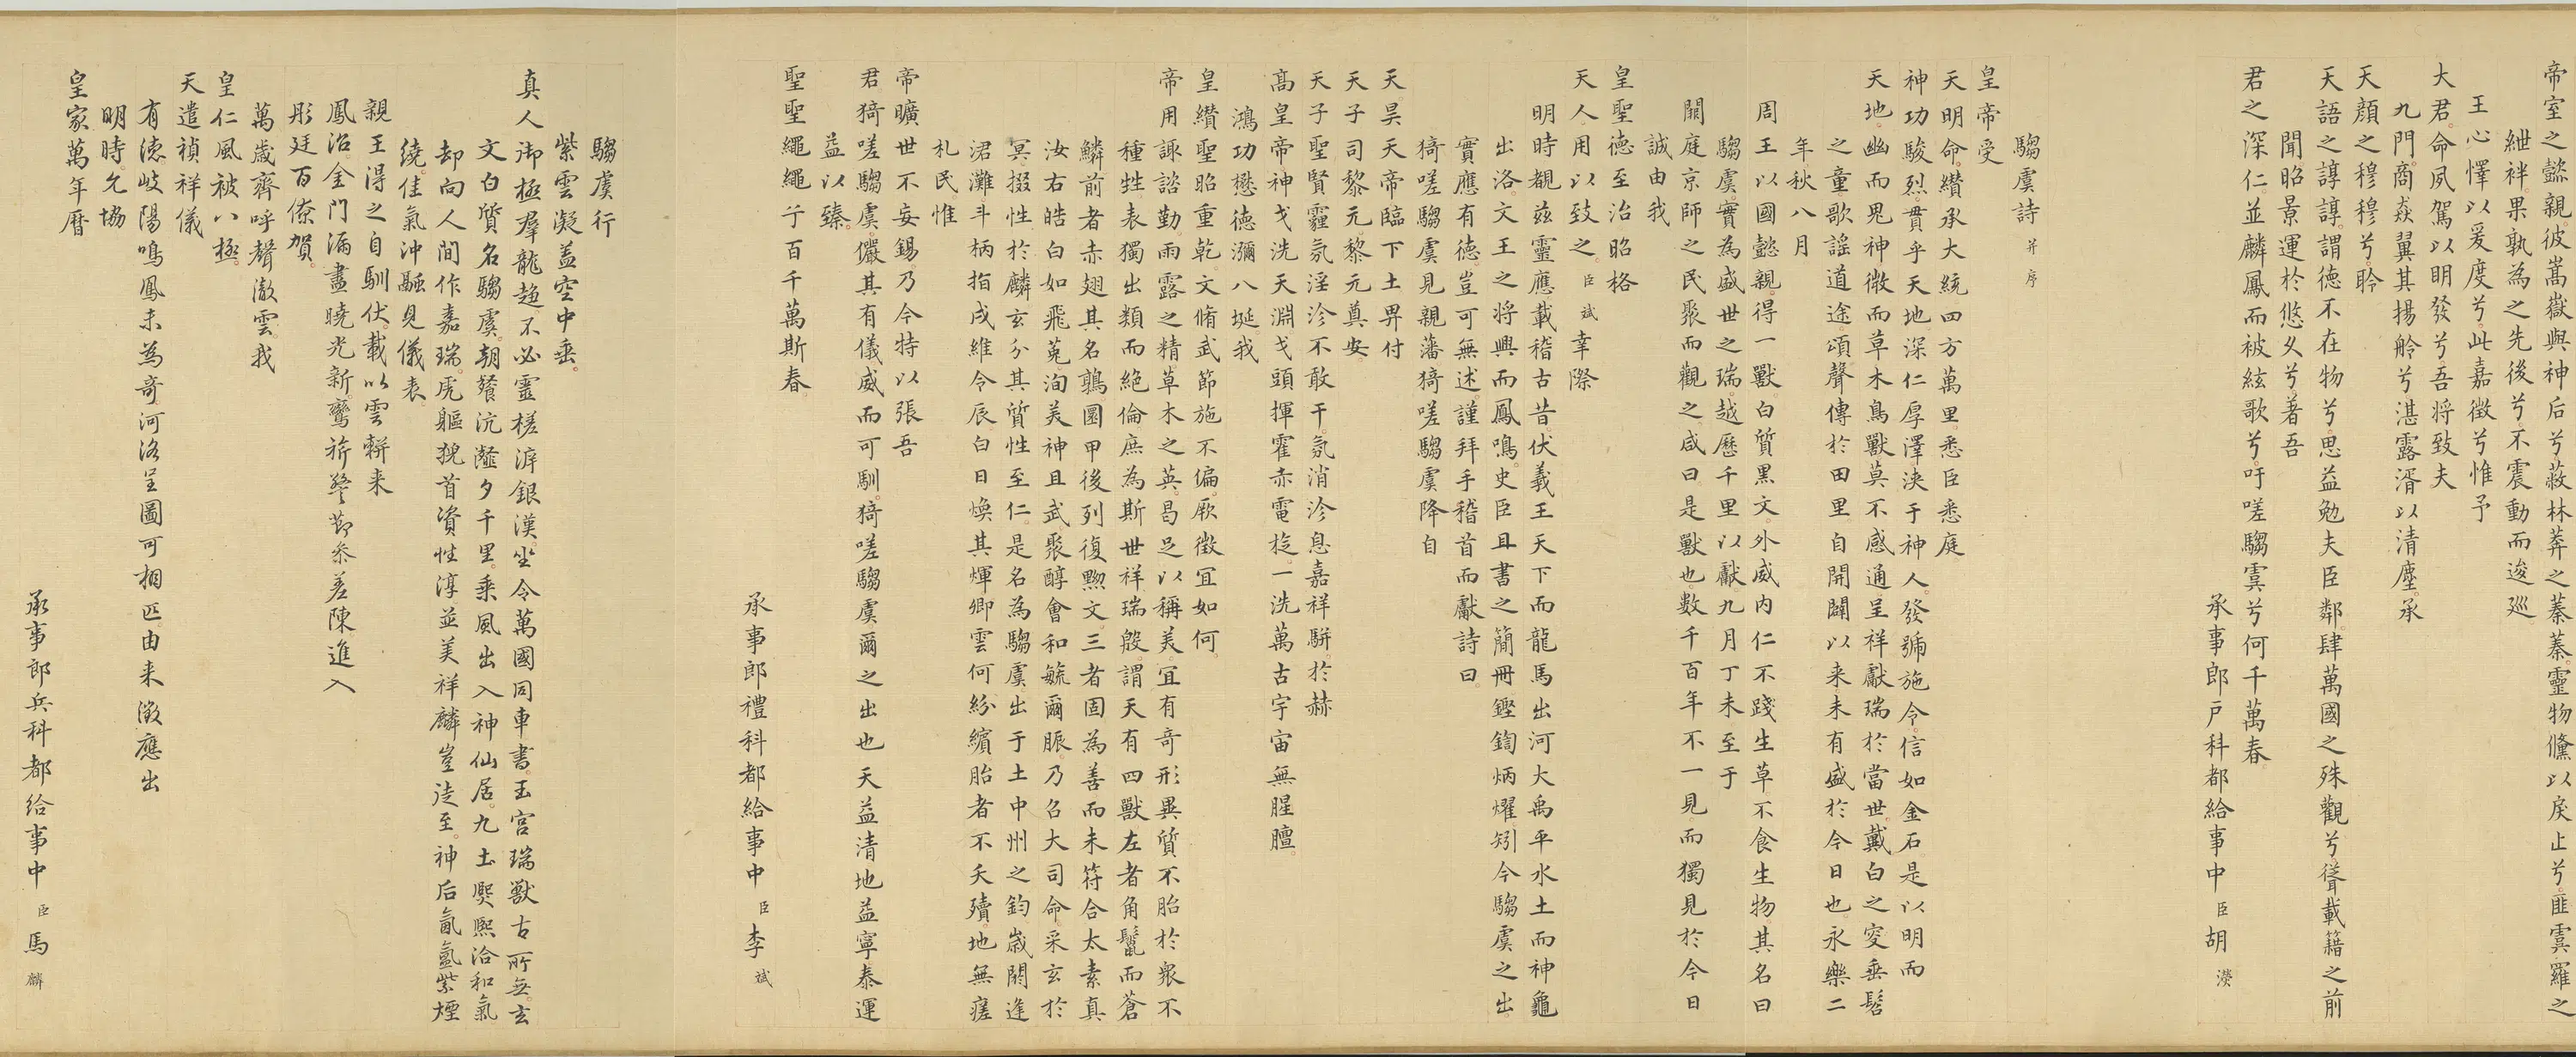 帝室之懿親彼嵩嶽與神后兮蔽林莽之蓁蓁靈物儵以戾止兮匪虞羅之
紲袢果孰為之先後兮不震動而逡巡
王心懌以爰度兮此嘉徵兮惟予
大君命夙駕以明發兮吾將致夫
九門商猋翼其揚舲兮湛露湑以清塵承
天顔之穆穆兮聆
天語之諄諄謂德不在物兮思益勉夫臣鄰肆萬國之殊觀兮聳載籍之前
聞昭景運於悠久兮著吾
君之深仁並麟鳳而被絃歌兮吁嗟騶虞兮何千萬春
承事郎戶科都給事中臣胡濙
騶虞詩并序
皇帝受
天明命纘承大統四方萬里悉臣悉庭
神功駿烈貫乎天地深仁厚澤浹于神人發號施令信如金石是以明而
天地幽而鬼神微而草木鳥獸莫不感通呈祥獻瑞於當世戴白之叟垂髫
之童歌謡道途頌聲傳於田里自開闢以来未有盛於今日也永樂二
年秋八月
周王以國懿親得一獸白質黑文外威内仁不踐生草不食生物其名曰
騶虞實為盛世之瑞越歷千里以獻九月丁未至于
闕庭京師之民聚而觀之咸曰是獸也數千百年不一見而獨見於今日
誠由我
皇聖德至治昭格
天人用以致之臣斌幸際
明時覩兹靈應載稽古昔伏羲王天下而龍馬出河大禹平水土而神龜
出洛文王之將興而鳳鳴史臣且書之簡冊鏗鍧炳燿矧今騶虞之出
實應有德豈可無述謹拜手稽首而獻詩曰
猗嗟騶虞見親藩猗嗟騶虞降自
天昊天帝臨下土畀付
天子司黎元黎元真安
天子聖賢霾氛淫沴不敢干氛消沴息嘉祥駢於赫
高皇帝神戈洗天淵戈頭揮霍赤電旋一洗萬古宇宙無腥膻
鴻功懋德瀰八埏我
皇纘聖昭重乾文脩武節施不偏厥徵宜如何
帝用諏諮勤雨露之精草木之英曷足以稱美宜有奇形異質不胎於衆不
種牲表獨出類而絕倫庶為斯世祥瑞殷謂天有四獸左者角鬣而蒼
鱗前者赤翅其名鶉圜甲後列復黝文三者固為善而未符合太素真
汝右皓白如飛菟洵美神且武聚醇會和毓爾脤乃召大司命采玄於
冥掇性於麟玄分其質性至仁是名為騶虞出于土中州之鈞歲閼逢
涒灘斗柄指戌維今辰白日煥其煇卿雲何紛繽胎者不夭殰地無瘥
札民惟
帝曠世不妄錫乃今特以張吾
君猗嗟騶虞儼其有儀威而可馴猗嗟騶虞爾之出也天益清地益寧泰運
益以臻
聖聖繩繩兮百千萬斯春
承事郎禮科都給事中臣李斌
騶虞行
紫雲凝蓋空中垂
真人御極羣龍趨不必靈槎泝銀漢坐令萬國同車書玉宮瑞獸古所無玄
文白質名騶虞朝餐沆瀣夕千里乗風出入神仙居九土熙熙洽和氣
却向人間作嘉瑞虎軀猊首資性淳並美祥麟豈徒至神后氤氳紫煙
繞佳氣沖融見儀表
親王得之自馴伏載以雲軿来
鳳治金門漏盡曉光新鸞旂警蹕叅差陳進入
彤廷百僚賀
萬歲齊呼聲澈雲我
皇仁風被八極
天遣禎祥儀
有德岐陽鳴鳳未為奇河洛呈圖可相匹由来徵應出
明時允協
皇家萬年曆
承事郎兵科都給事中臣馬麟